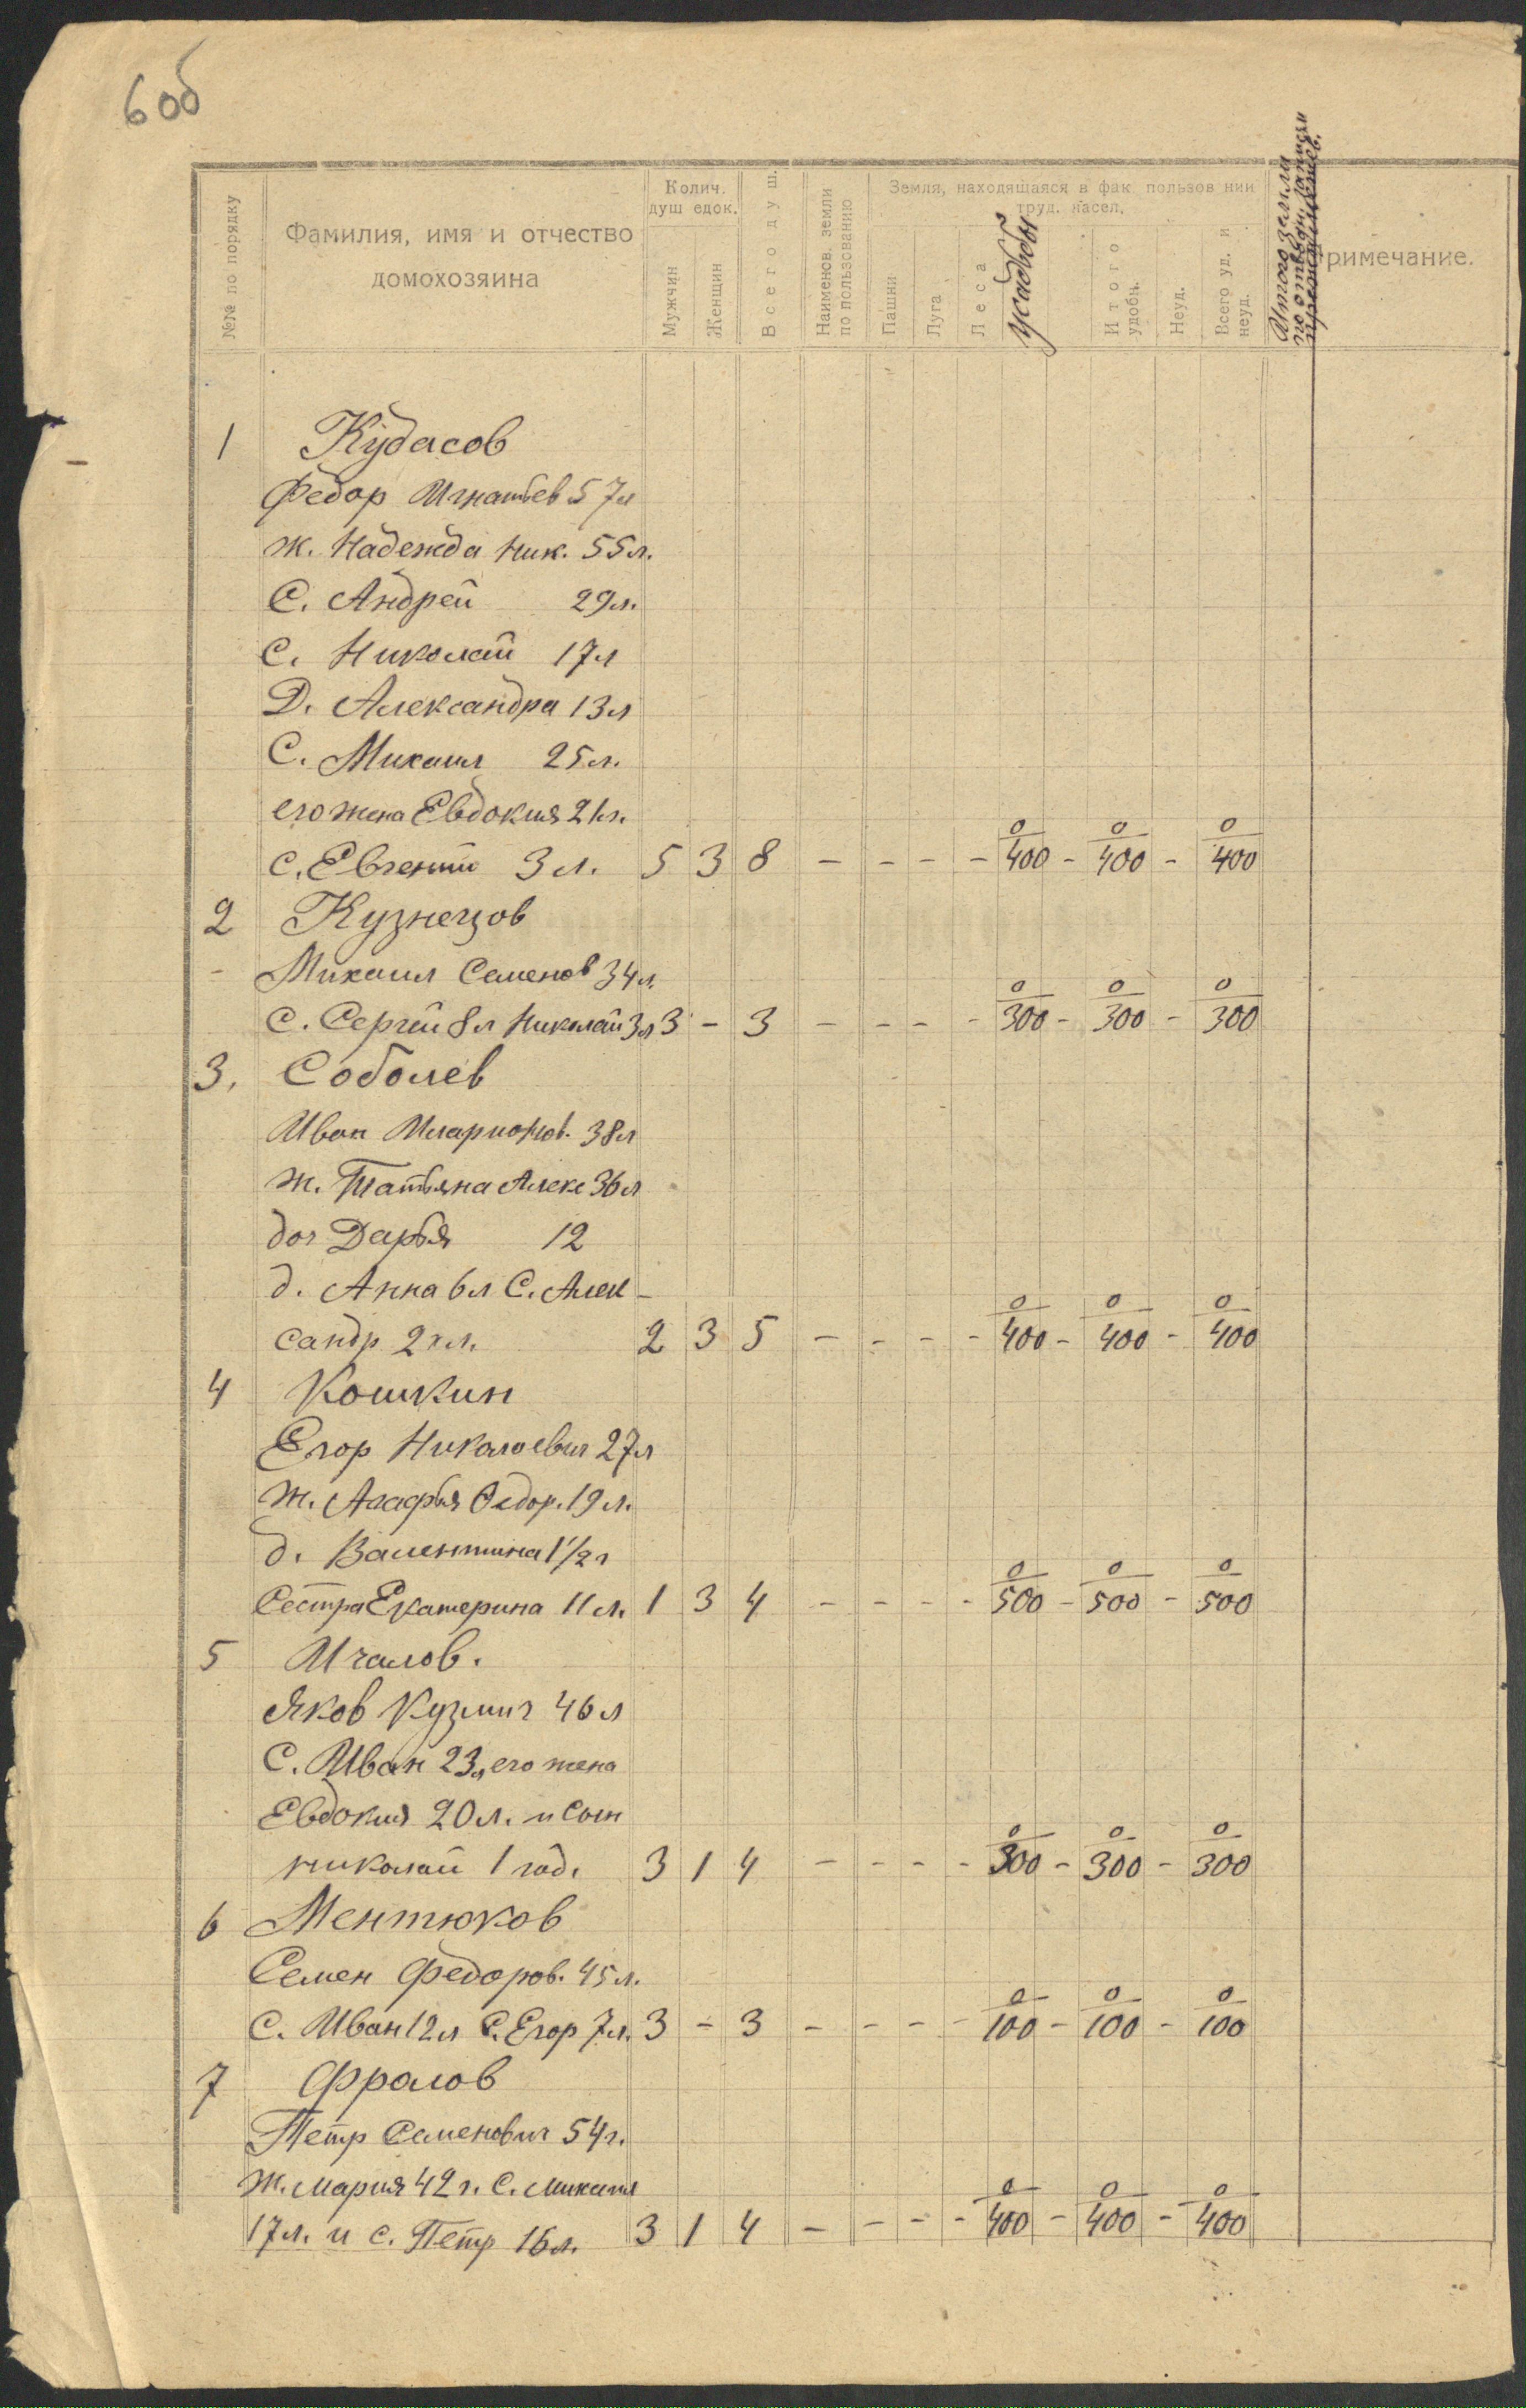 6 об
№№ по порядку
Фамилия, имя и отчество
домохозяина
Колич.
душ едок.
Мужчин
Женщин
Всего душ.
Наименов. земли
по пользованию
Земля, находящаяся в фак. пользов нии
труд. насел.
Пашни
Луга
Леса
усадьбы
Итого
удобн.
Неуд.
Всего уд. и
неуд.
Итого земли
по
римечание.
1 Кудасов
Федор Игнатьев 57л
ж. Надежда Ник. 55л.
С. Андрей 29л.
С. Николай 17л
Д. Александра 13л
С. Михаил 25л.
его жена Евдокия 21г.
с. Евгений 3л. 5 3 8 – – – – 0/400 – 0/400 – 0/400
2 Кузнецов
Михаил Семенов 34л.
С. Сергей 8л Николай 3л 3 – 3 – – – – 0/300 – 0/300 – 0/300
3. Соболев
Иван Иларионов. 38л
ж. Татьяна Алекс 36л
доч Дарья 12
д. Анна 6л С. Алек–
сандр 2хл. 2 3 5 – – – – 0/400 – 0/400 – 0/400
4 Кошкин
Егор Николаевич 27л
Ж. Агафья Федор. 19л.
д. Валентина 1 1/2 г
Сестра Екатерина 11л. 1 3 4 – – – – 0/500 – 0/500 – 0/500
5 Ичалов.
Яков Кузмич 46л
С. Иван 23л его жена
Евдокия 20л. и сын
николай 1 год. 3 1 4 – – – – 0/300 – 0/300 – 0/300
6 Ментюков
Семен Федоров. 45л.
С. Иван 12л С. Егор 7л. 3 – 3 – – – – 0/100 – 0/100 – 0/100
7 Фролов
Петр Семенович 54г.
Ж. Мария 42г. С. Михаил
17л. и с. Петр 16л. 3 1 4 – – – – 0/400 – 0/400 – 0/400